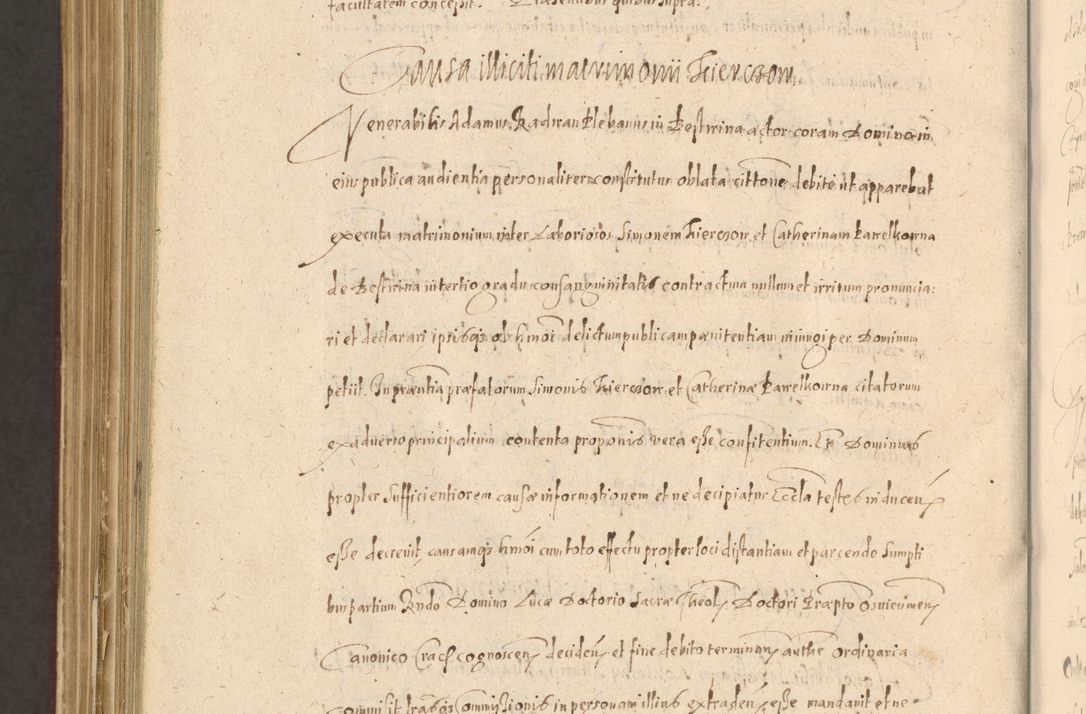 facultatem concessit. Praesentibus quibus supra.
Causa illiciti matrimonii Kierczow
Venerabilis Adamus Radwan Plebanus in Bestwina actor coram Domino in
eius publica audientia personaliter constitutus oblata cittone debite ut apparebat
executa matrimonium inter Laboriosos Simonem Kierczow et Catherinam Pawelkowna
de Bestwina in tertio gradu consanguinitatis contractum nullum et irritum pronuncia:
ri et declarari ipsisqs ob hmoi delictum publicam paenitentiam iniungi per Dominum
petiit. In praentia praefatorum Simonis Kierczow et Catherinae Pawelkowna citatorum
ex adverso principalium contenta proponis vera esse confitentium. Et Dominus
propter sufficientiorem causae informationem et ne decipiatur Eccla testes inducen
esse decrevit, causamqs hmoi cum toto effectu propter loci distantiam et parcendo sumpti
bus partium Rndo Domino Lucae Doctorio Sacrae Theol Doctori Praepto Osvicimen
Canonico Crac cognoscen deciden et fine debito terminan authe ordinaria
commisit lrasqs Commissionis in personam illius extraden esse mandavit et ne